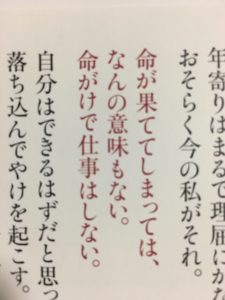 年寄りはまるで理屈にかな
おそらく今の私がそれ。
命が果ててしまっては、
なんの意味もない。
命がけで仕事はしない。
自分はできるはずだと思っ
落ち込んでやけを起こす。